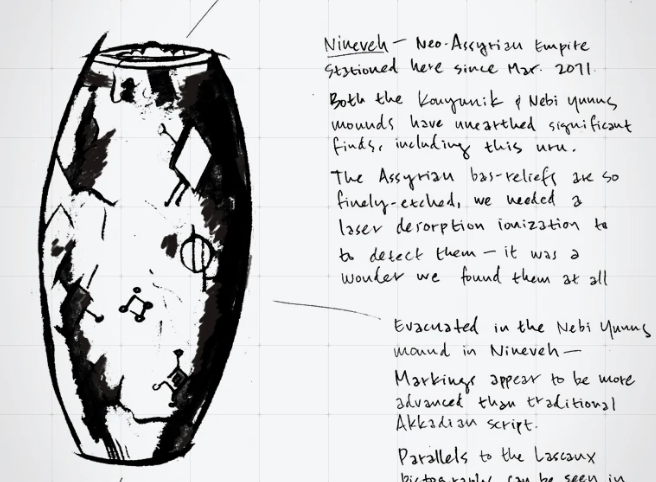 Nineveh — Neo-Assyrian Empire
Stationed here since Mar. 2071.
Both the Kouyunik & Nebi Yunus
mounds have unearthed significant
finds, including this urn.
The Assyrian bas-reliefs are so
finely-etched, we needed a
laser desorption ionization to
to detect them — it was a
wonder we found them at all
Evacuated in the Nebi Yunus
mound in Nineveh —
Markings appear to be more
advanced than traditional
Akkadian script.
Parallels to the Lascaux
pictographs can be seen in